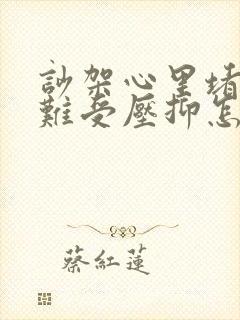 訬架心里堵
難受壓抑怎
蔡紅蓮